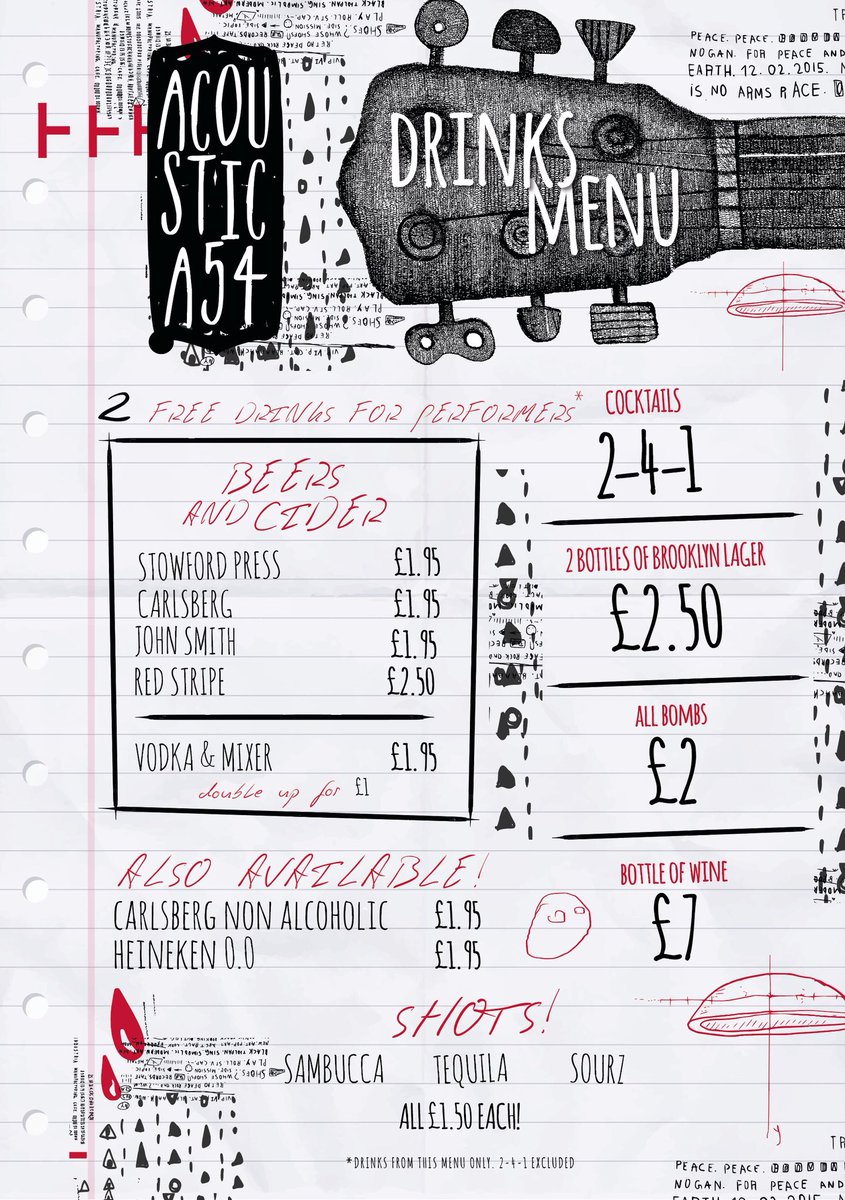 ACOU
STIC
A54
DRINKS
MENU
PEACE. PEACE.
NOGAN. FOR PEACE AND
EARTH. 12.02.2015.
IS NO ARMS RACE.
2 FREE DRINKS FOR PERFORMERS*
BEERS
AND CIDER
STOWFORD PRESS £1.95
CARLSBERG £1.95
JOHN SMITH £1.95
RED STRIPE £2.50
VODKA & MIXER £1.95
double up for £1
COCKTAILS
2-4-1
2 BOTTLES OF BROOKLYN LAGER
£2.50
ALL BOMBS
£2
BOTTLE OF WINE
£7
ALSO AVAILABLE!
CARLSBERG NON ALCOHOLIC £1.95
HEINEKEN 0.0 £1.95
SHOTS!
SAMBUCCA TEQUILA SOURZ
ALL £1.50 EACH!
*DRINKS FROM THIS MENU ONLY. 2-4-1 EXCLUDED
PEACE. PEACE.
NOGAN. FOR PEACE AND